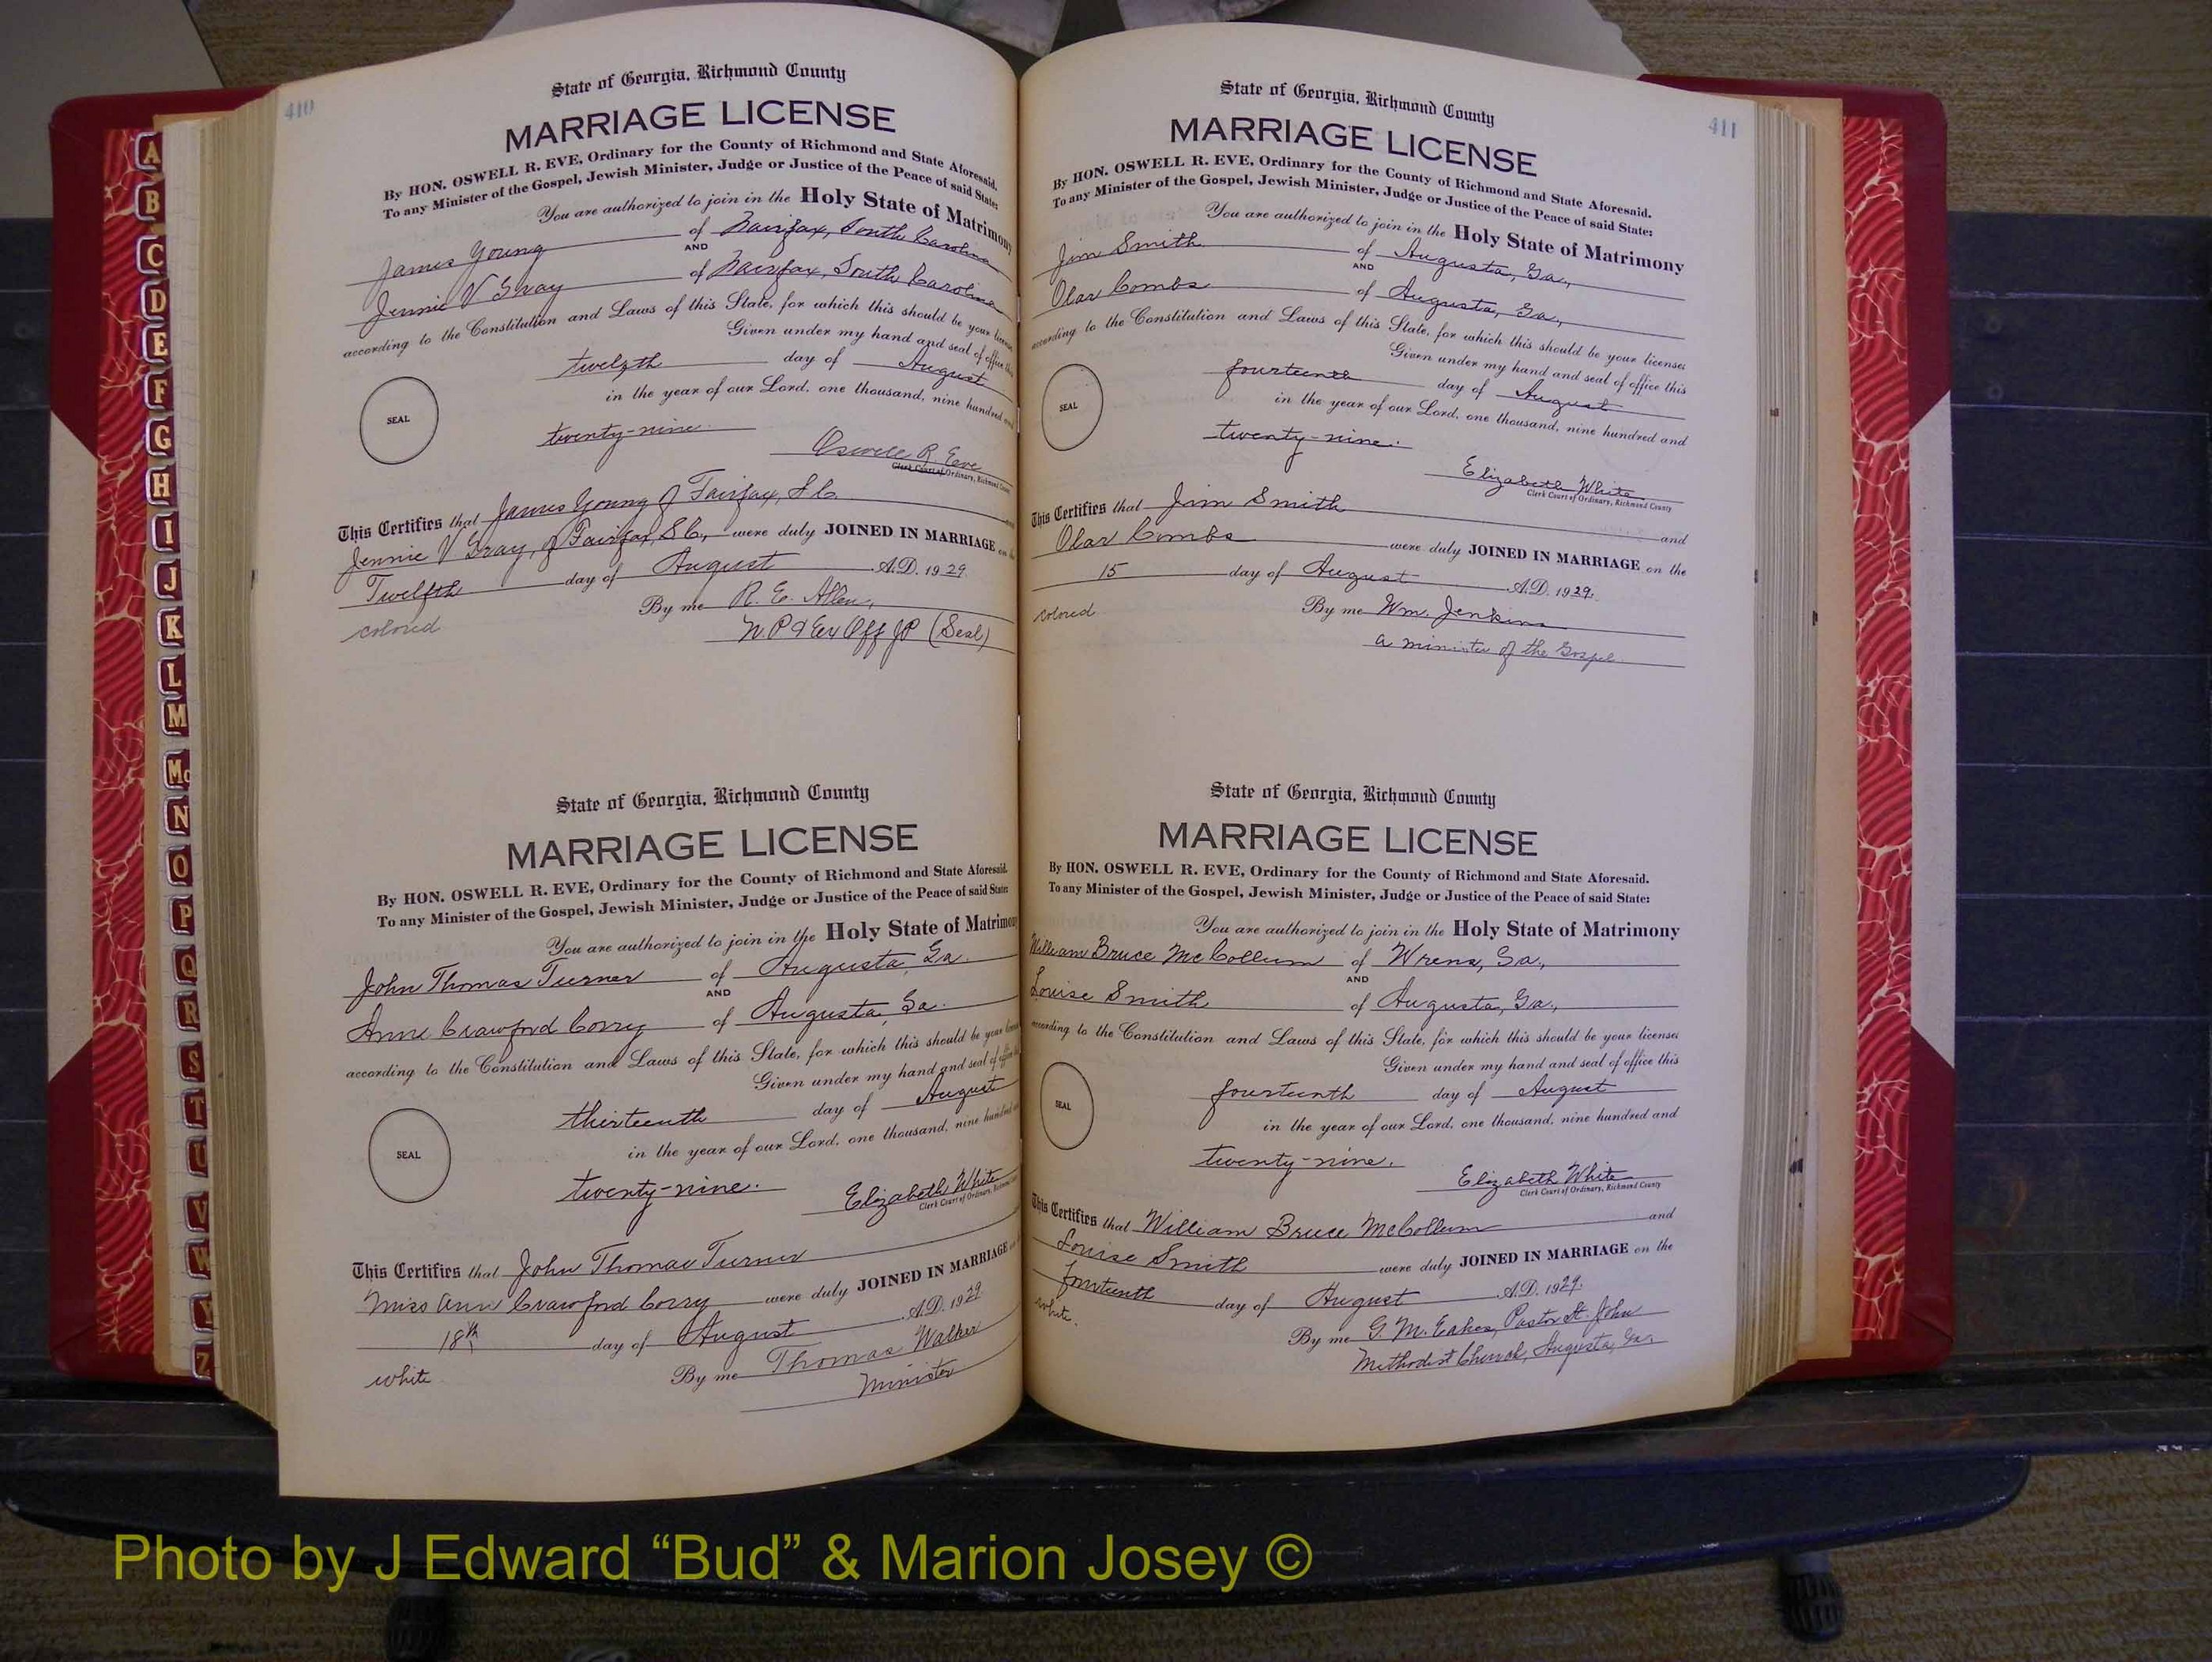 410
State of Georgia, Richmond County
MARRIAGE LICENSE
By HON. OSWELL R. EVE, Ordinary for the County of Richmond and State Aforesaid.
To any Minister of the Gospel, Jewish Minister, Judge or Justice of the Peace of said State:
You are authorized to join in the Holy State of Matrimony
James Young of Fairfax, South Carolina
AND
Jennie V Gray of Fairfax, South Carolina
according to the Constitution and Laws of this State, for which this should be your license
Given under my hand and seal of office this
twelfth day of August
in the year of our Lord, one thousand, nine hundred and
SEAL
twenty-nine.
Oswell R. Eve
Clerk Court of Ordinary, Richmond County
This Certifies that James Young of Fairfax, S.C.
Jennie V Gray, of Fairfax, S.C., were duly JOINED IN MARRIAGE on the
Twelfth day of August A.D. 1929
colored
By me R. E. Allen,
N.P. & Ex Off JP (Seal)
State of Georgia, Richmond County
MARRIAGE LICENSE
By HON. OSWELL R. EVE, Ordinary for the County of Richmond and State Aforesaid.
To any Minister of the Gospel, Jewish Minister, Judge or Justice of the Peace of said State:
You are authorized to join in the Holy State of Matrimony
John Thomas Turner of Augusta, Ga.
AND
Anne Crawford Corry of Augusta, Ga.
according to the Constitution and Laws of this State, for which this should be your license
Given under my hand and seal of office this
thirteenth day of August
in the year of our Lord, one thousand, nine hundred and
SEAL
twenty-nine.
Elizabeth White
Clerk Court of Ordinary, Richmond County
This Certifies that John Thomas Turner
Miss Ann Crawford Corry were duly JOINED IN MARRIAGE on
18th day of August A.D. 1929
white
By me Thomas Walker
Minister
411
State of Georgia, Richmond County
MARRIAGE LICENSE
By HON. OSWELL R. EVE, Ordinary for the County of Richmond and State Aforesaid.
To any Minister of the Gospel, Jewish Minister, Judge or Justice of the Peace of said State:
You are authorized to join in the Holy State of Matrimony
Jim Smith of Augusta, Ga.,
AND
Olar Combs of Augusta, Ga.,
according to the Constitution and Laws of this State, for which this should be your licenses
Given under my hand and seal of office this
fourteenth day of August
in the year of our Lord, one thousand, nine hundred and
SEAL
twenty-nine.
Elizabeth White
Clerk Court of Ordinary, Richmond County
This Certifies that Jim Smith and
Olar Combs were duly JOINED IN MARRIAGE on the
15 day of August A.D. 1929.
colored
By me Wm. Jenkins
a minister of the Gospel.
State of Georgia, Richmond County
MARRIAGE LICENSE
By HON. OSWELL R. EVE, Ordinary for the County of Richmond and State Aforesaid.
To any Minister of the Gospel, Jewish Minister, Judge or Justice of the Peace of said State:
You are authorized to join in the Holy State of Matrimony
William Bruce McCollum of Wrens, Ga.,
AND
Louise Smith of Augusta, Ga.,
according to the Constitution and Laws of this State, for which this should be your licenses
Given under my hand and seal of office this
fourteenth day of August
in the year of our Lord, one thousand, nine hundred and
SEAL
twenty-nine.
Elizabeth White
Clerk Court of Ordinary, Richmond County
This Certifies that William Bruce McCollum and
Louise Smith were duly JOINED IN MARRIAGE on the
fourteenth day of August A.D. 1929.
white.
By me G. M. Eakes, Pastor St. John
Methodist Church, Augusta, Ga.
A
B
C
D
E
F
G
H
I
J
K
L
M
Mc
N
O
P
Q
R
S
T
U
V
W
Y
Z
Photo by J Edward “Bud” & Marion Josey ©